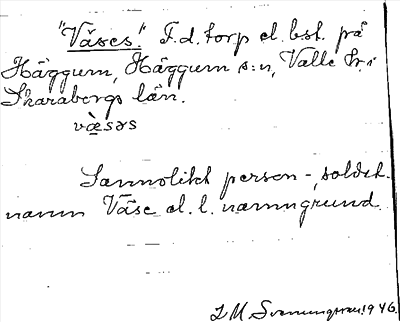 "Våses." F.d. torp el. bst. på
Häggum, Häggum s:n, Valle hr. i
Skaraborgs län.
væ̀səs
Sannolikt person-, soldat-
namn Våse el. l. namngrund.
1946.